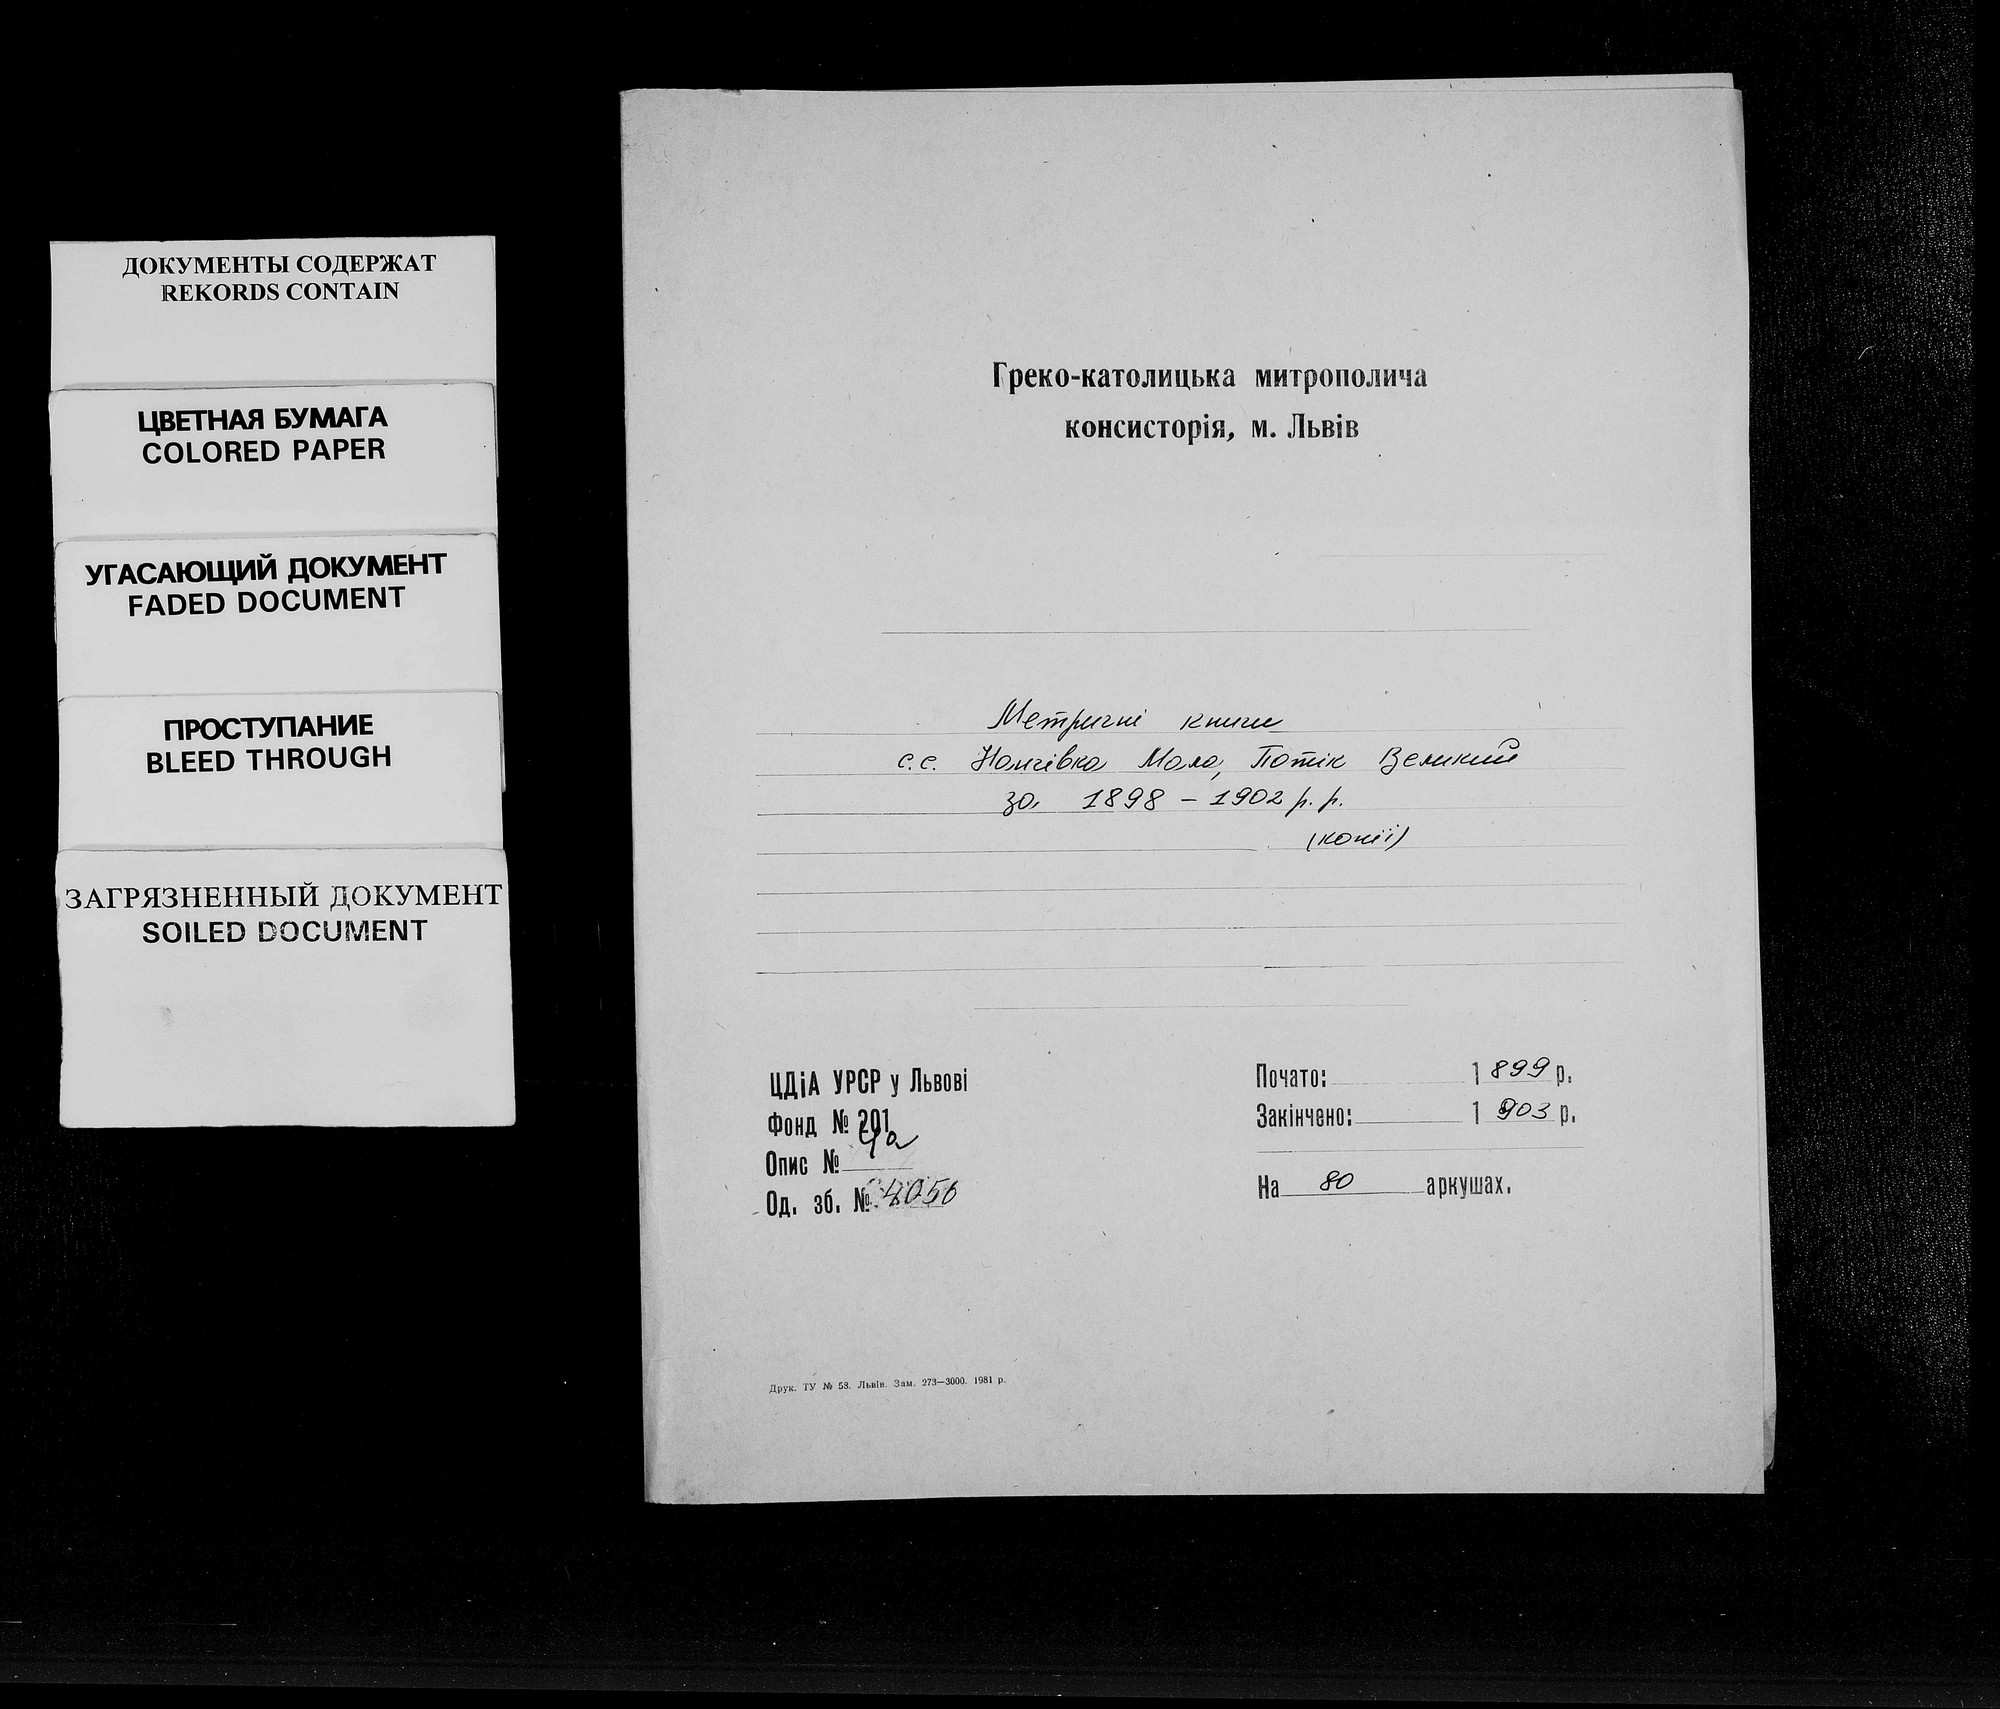 ДОКУМЕНТЫ СОДЕРЖАТ
REKORDS CONTAIN
ЦВЕТНАЯ БУМАГА
COLORED PAPER
УГАСАЮЩИЙ ДОКУМЕНТ
FADED DOCUMENT
ПРОСТУПАНИЕ
BLEED THROUGH
ЗАГРЯЗНЕННЫЙ ДОКУМЕНТ
SOILED DOCUMENT
Греко-католицька митрополича
консисторія, м. Львів
Метричні книги
с.с. Мала, Потік Великий
за 1898 – 1902 р.р.
(копії)
ЦДіА УРСР у Львові
Фонд № 201
Опис № 4а
Од. зб. № 4056
Почато: 1899 р.
Закінчено: 1903 р.
На 80 аркушах.
Друк. ТУ № 58. Львів. Зам. 273—3000. 1981 р.